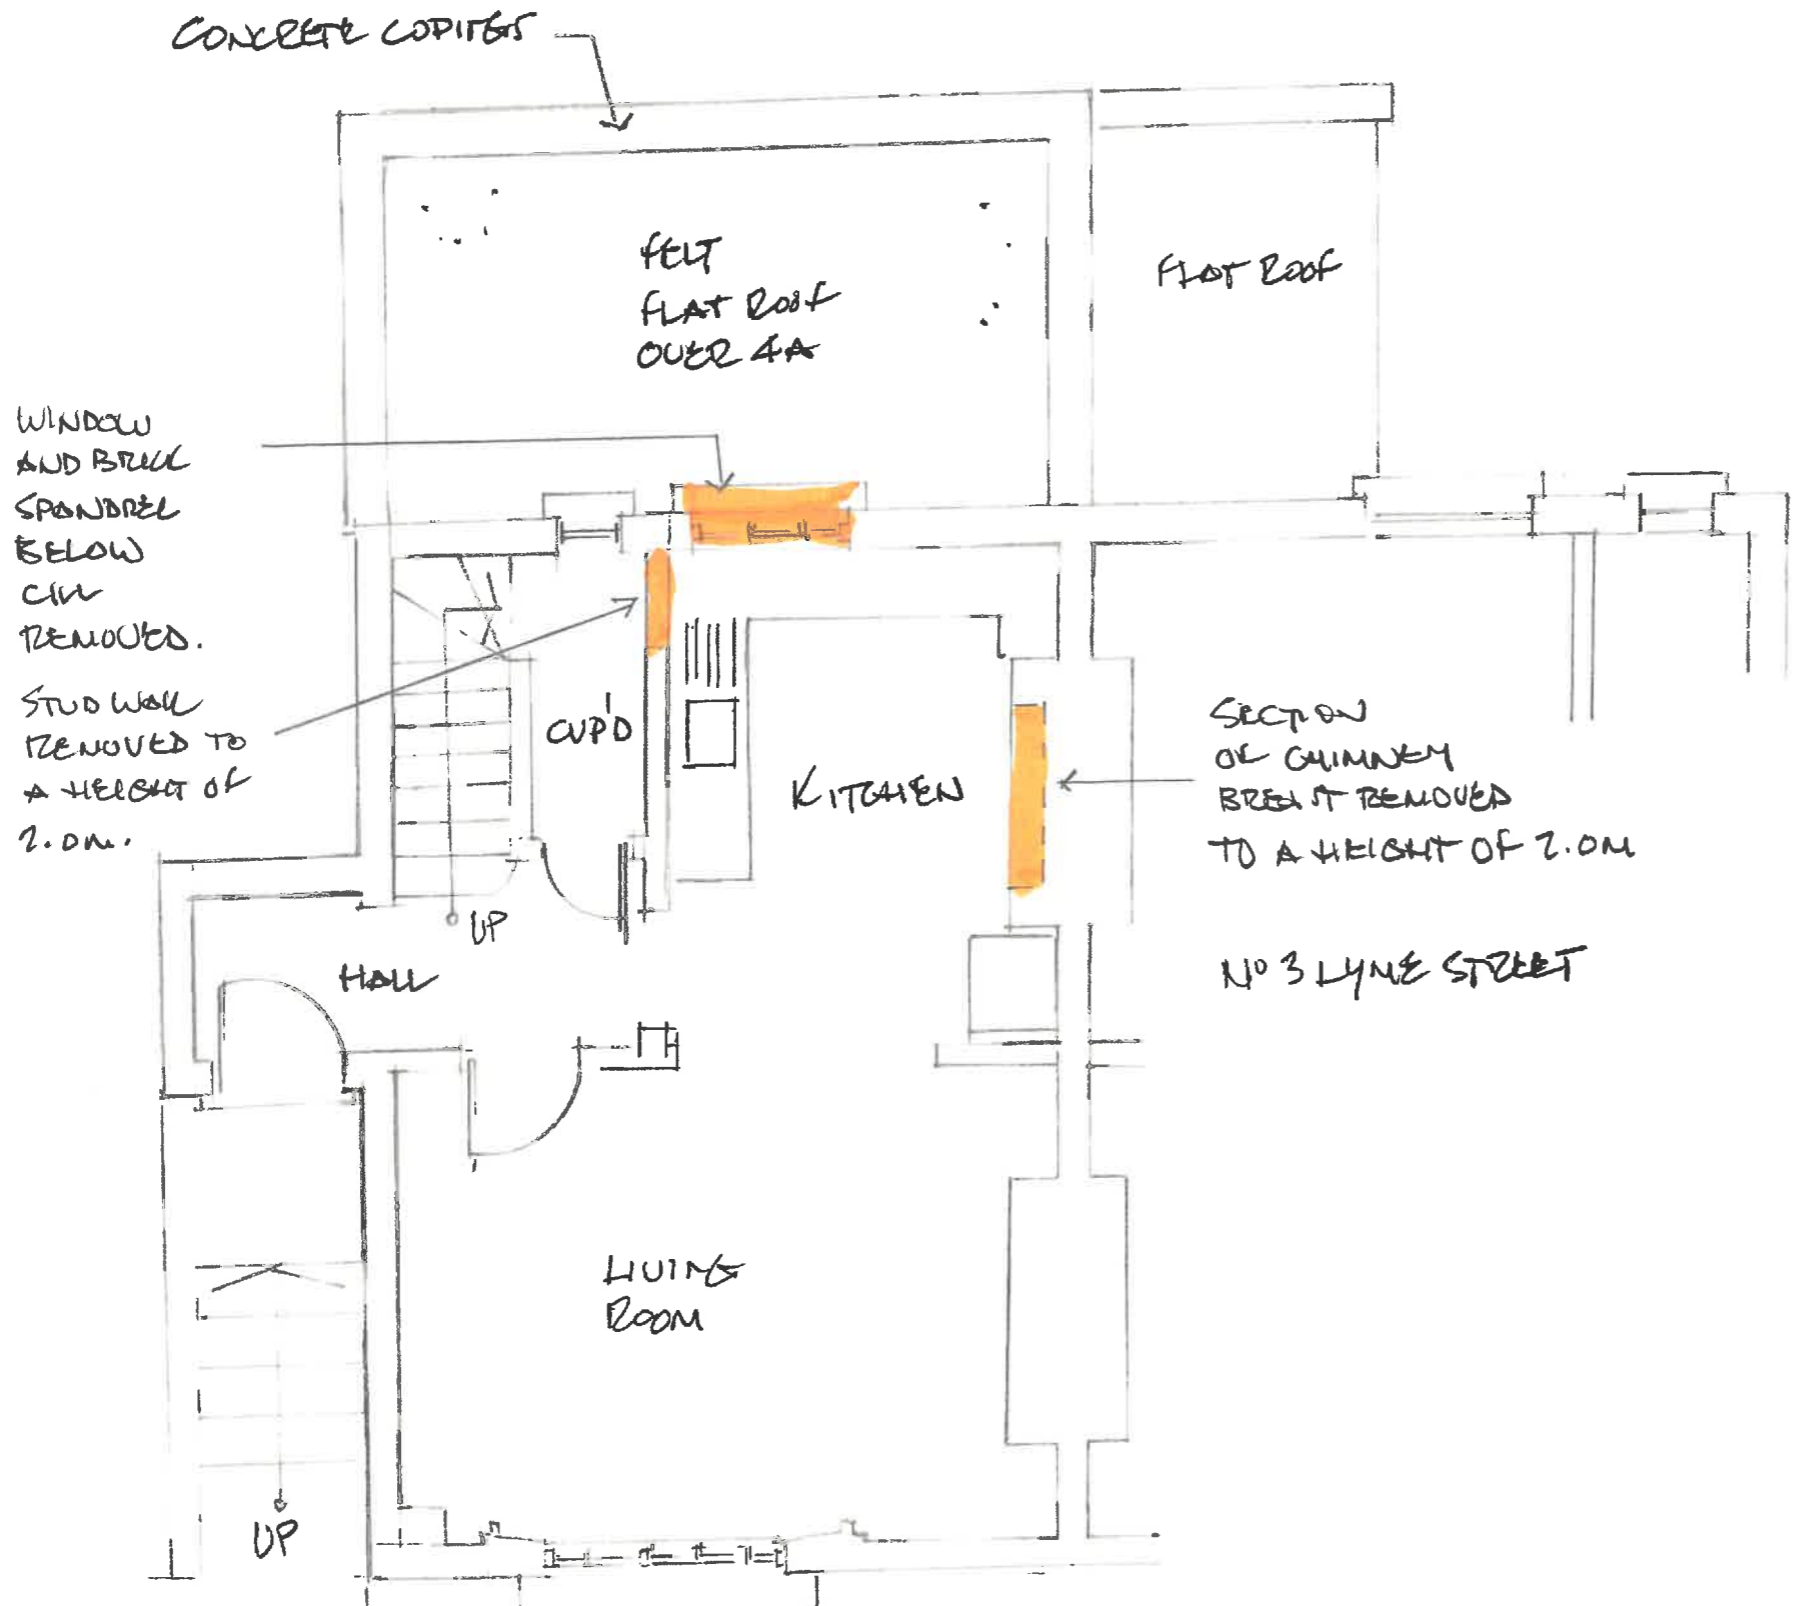 CONCRETE COPINGS
FELT
FLAT ROOF
OVER 4A
FLAT ROOF
WINDOW
AND BRICK
SPANDREL
BELOW
CILL
REMOVED.
STUD WALL
REMOVED TO
A HEIGHT OF
2.0M.
CUP'D
KITCHEN
SECTION
OF CHIMNEY
BREAST REMOVED
TO A HEIGHT OF 2.0M
UP
HALL
Nº 3 LYME STREET
LIVING
ROOM
UP